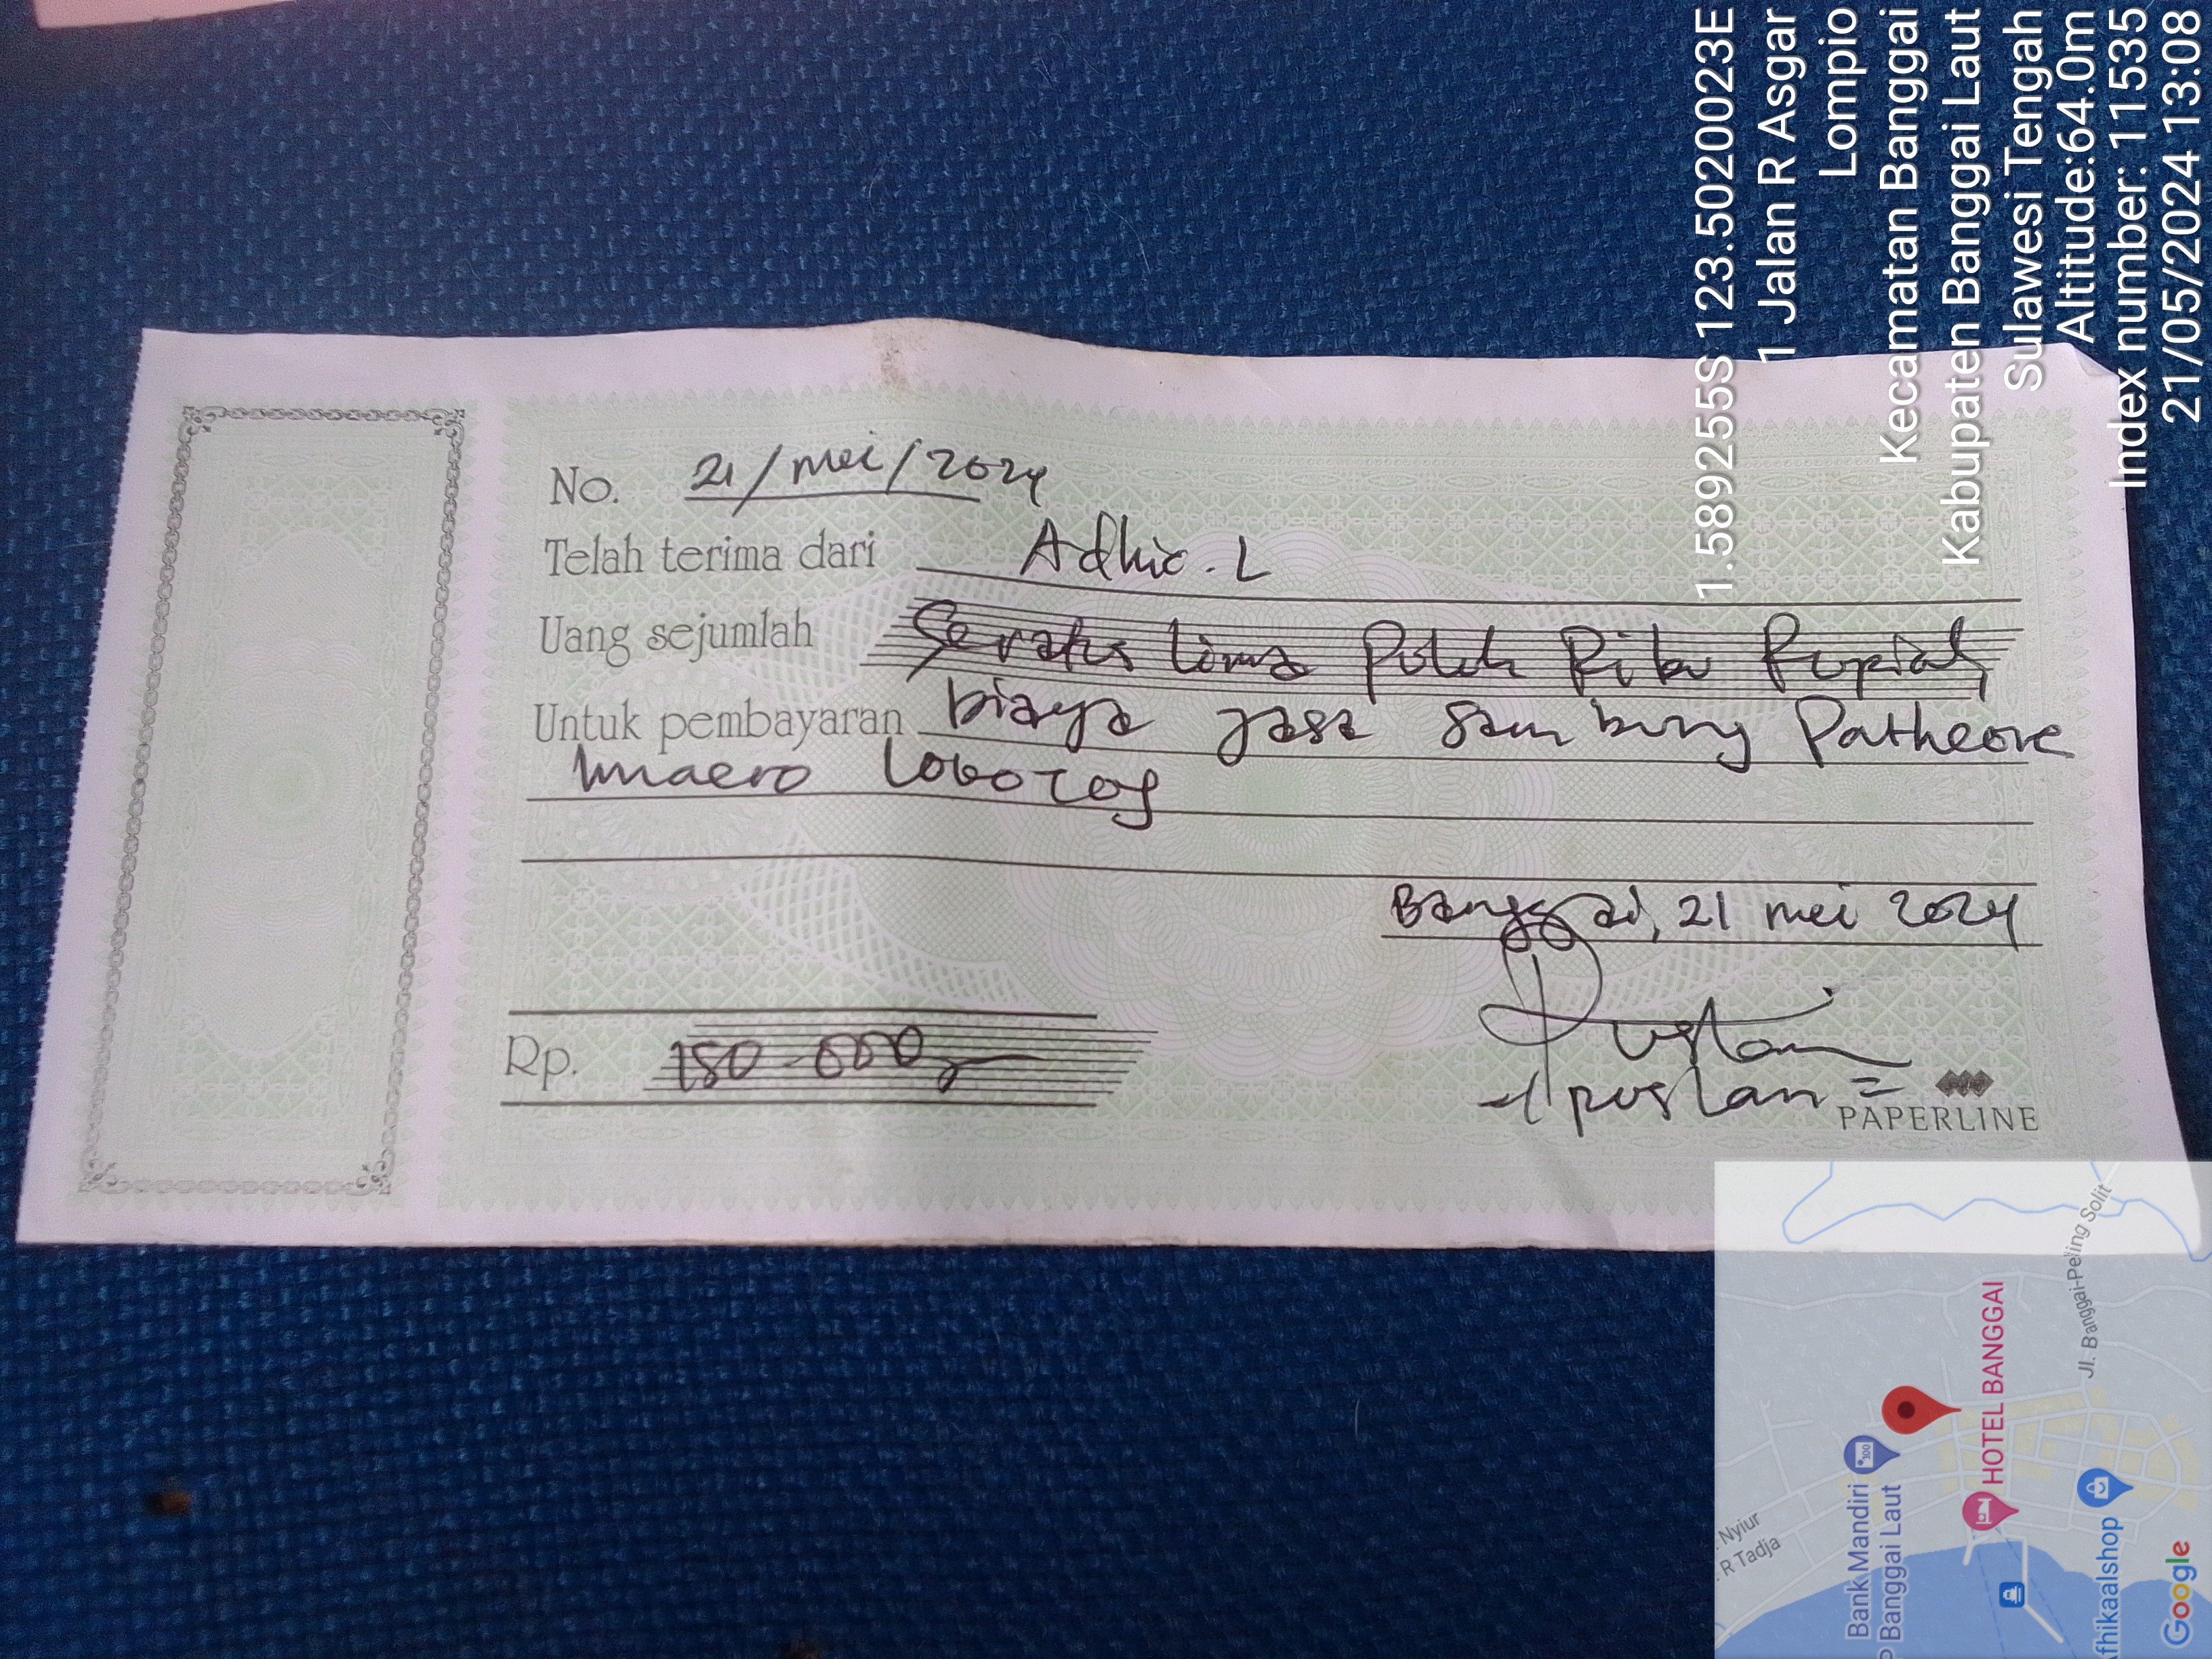 No. 21/mei/2024
Telah terima dari Adhie. L
Uang sejumlah Seratus lima Puluh Ribu Rupiah
Untuk pembayaran biaya jasa Sambung Patheore
Rp. 150.000,-
Banggai, 21 mei 2024
PAPERLINE
1.5892555S 123.5020023E
1 Jalan R Asgar
Lompio
Kecamatan Banggai
Kabupaten Banggai Laut
Sulawesi Tengah
Altitude:64.0m
Index number: 11535
21/05/2024 13:08
Nyiur
R Tadja
Bank Mandiri
P Banggai Laut
HOTEL BANGGAI
Jl. Banggai-Peling Solit
fhikaalshop
Google